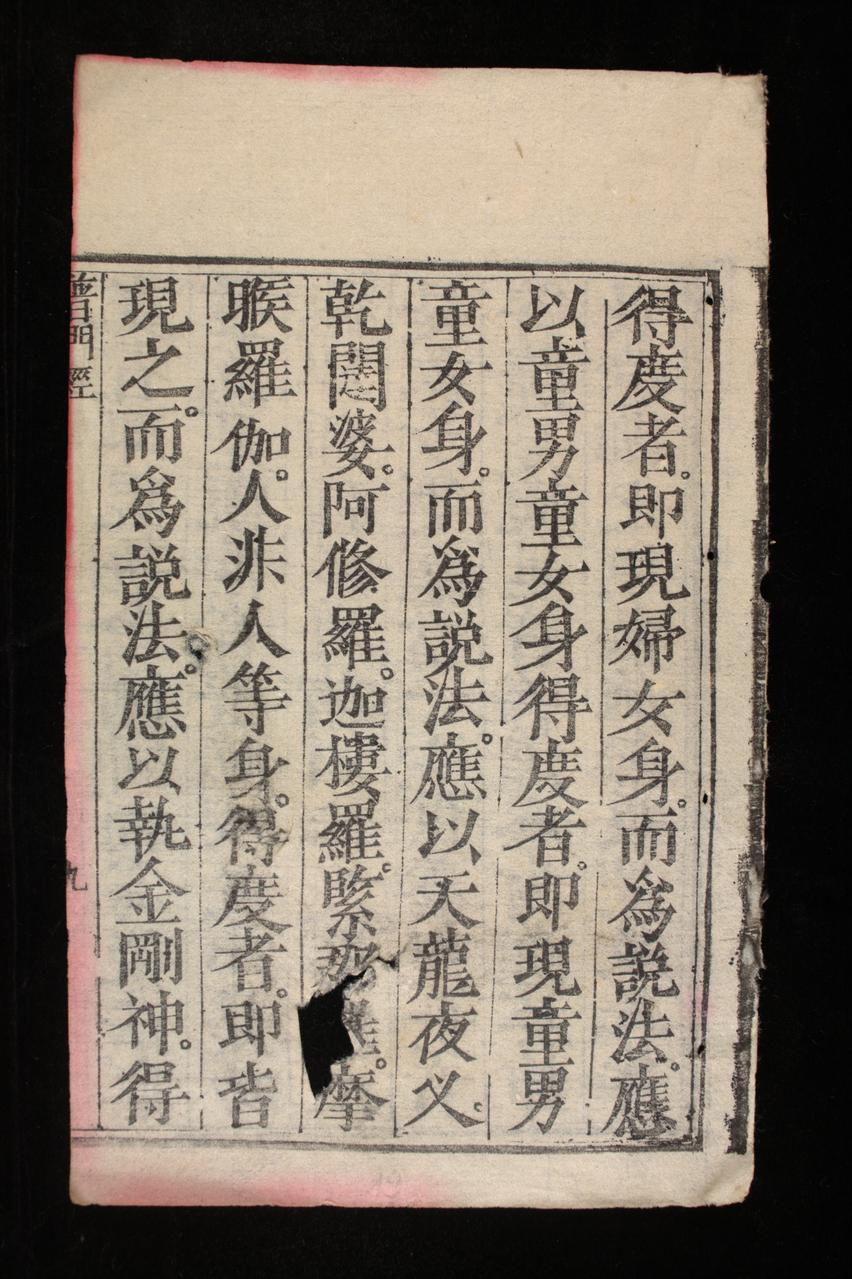 得度者。即現婦女身。而為說法。應
以童男童女身得度者。即現童男
童女身。而為說法。應以天龍夜乂。
乾闥婆。阿修羅。迦樓羅。緊那羅。摩
睺羅伽。人非人等身。得度者。即皆
現之。而為說法。應以執金剛神。得
普門經
九